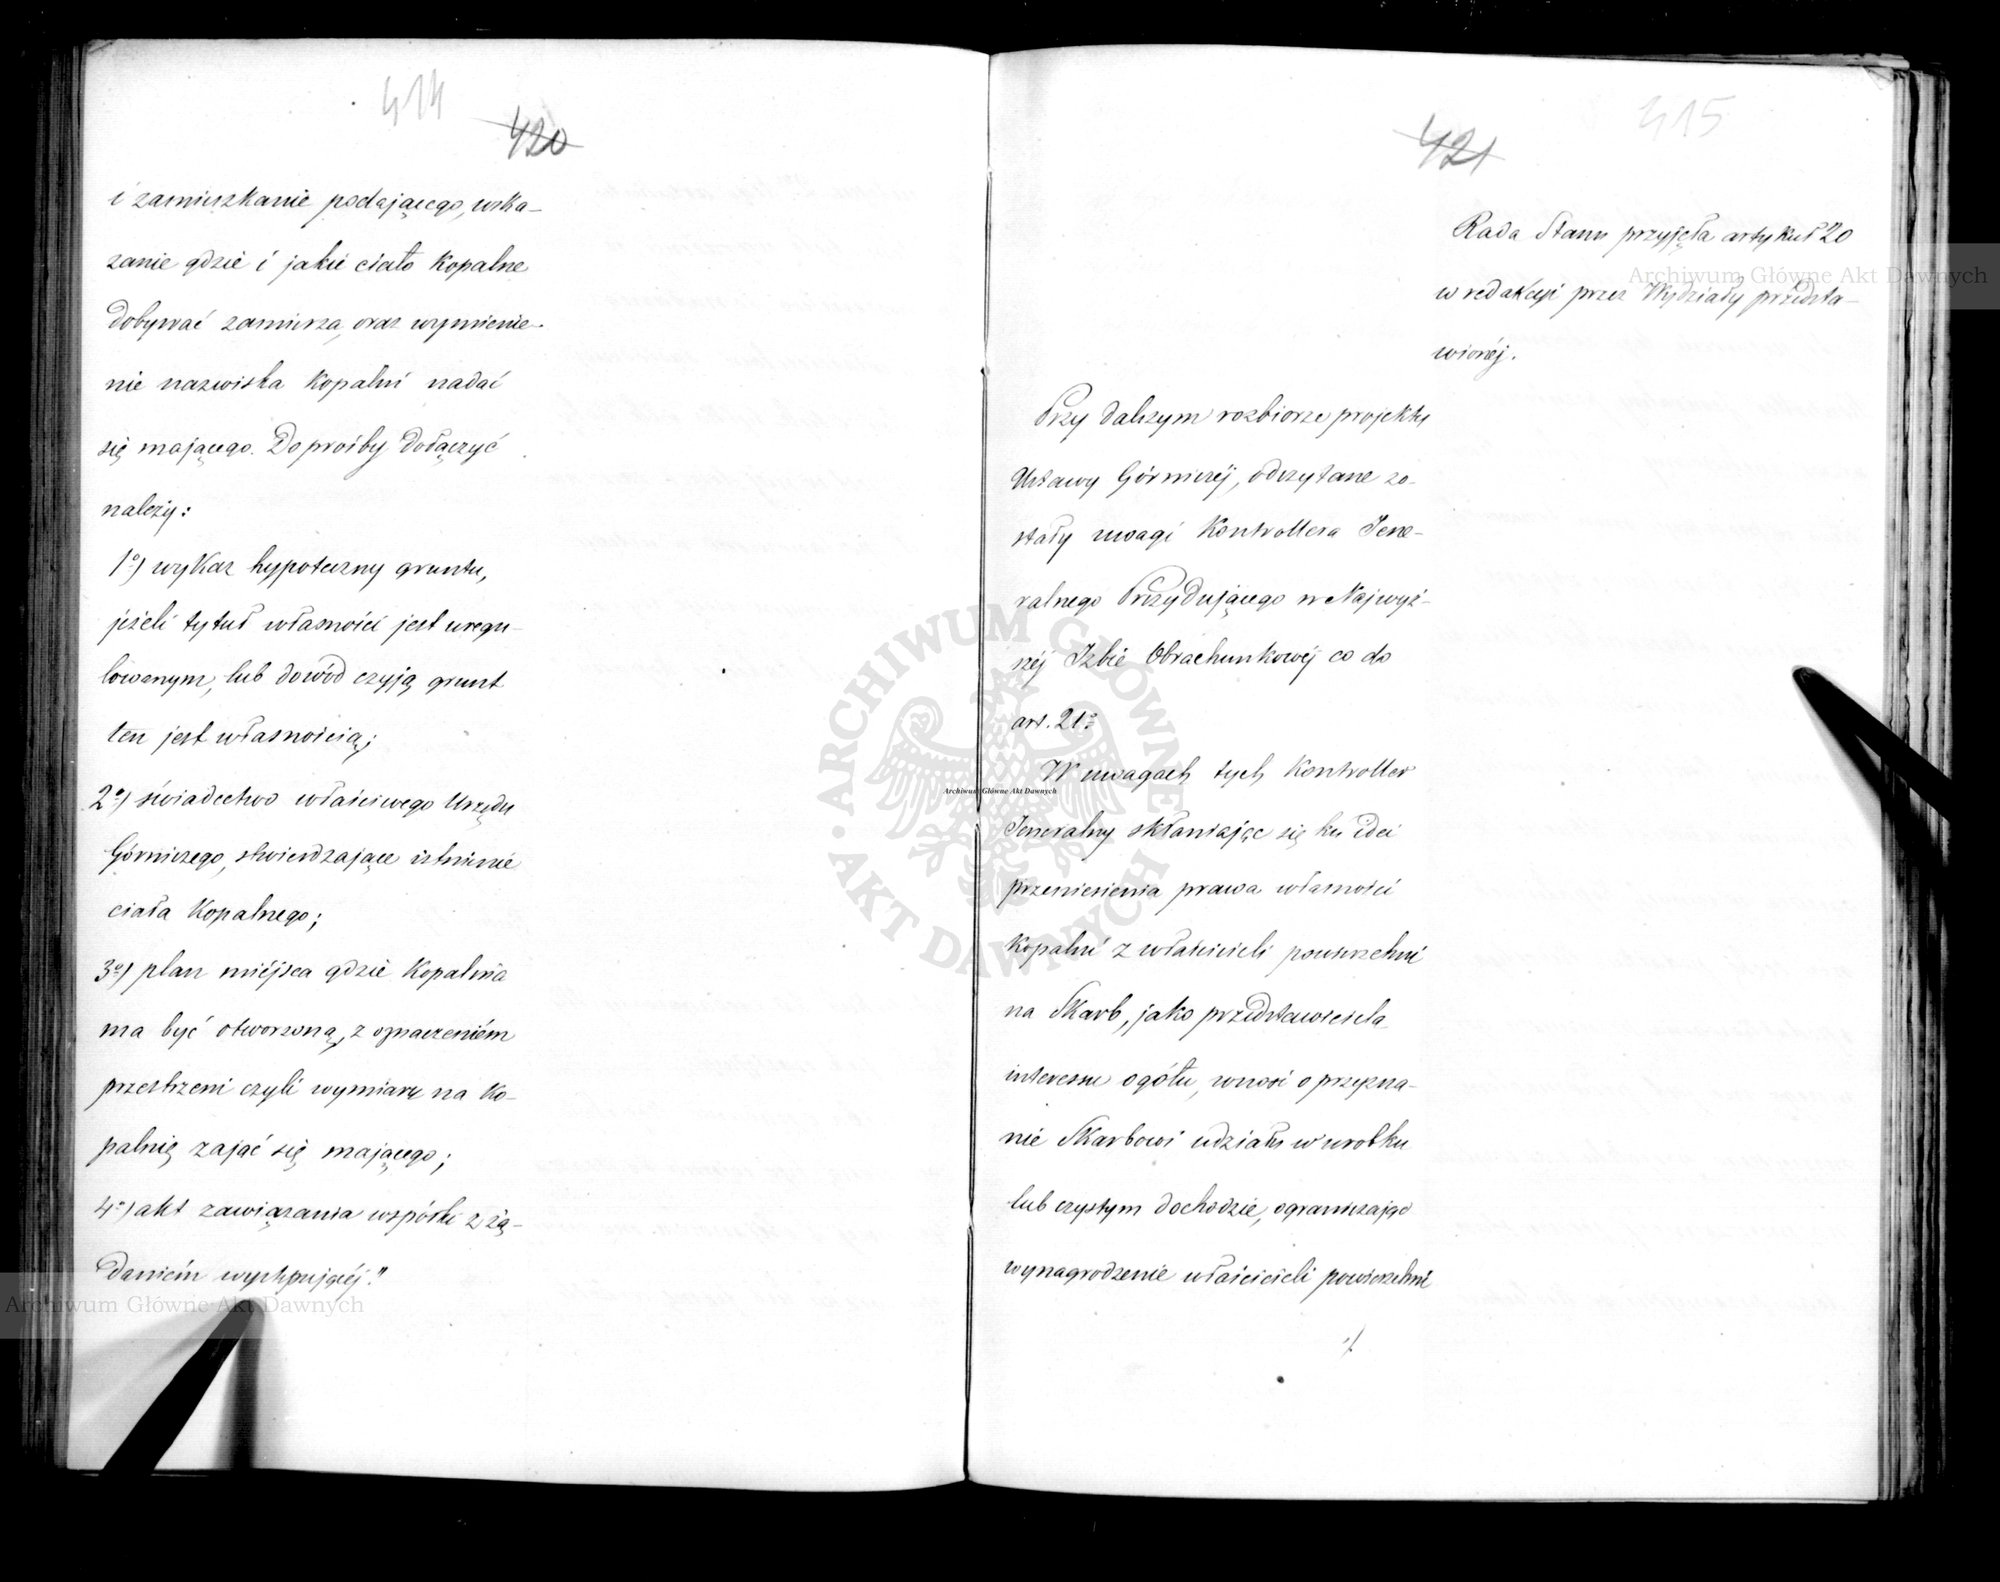 414
420
i zamieszkanie podającego, wska-
zanie gdzie i jakie ciało kopalne
dobywać zamierza, oraz wymienie-
nie nazwiska kopalni nadać
się mającego. Do prośby dołączyć
należy:
1º) wykaz hypoteczny gruntu,
jeżeli tytuł własności jest uregu-
lowanym, lub dowód czyją grunt
ten jest własnością;
2º) świadectwo właściwego Urzędu
Górniczego, stwierdzające istnienie
ciała kopalnego;
3º) plan miejsca gdzie kopalnia
ma być otworzoną, z oznaczeniem
przestrzeni czyli wymiaru na ko-
palnię zająć się mającego;
4º) akt zawiązania wspólki z żą-
daniem występującéj."
415
421
Rada Stanu przyjęła artykuł 20
w redakcyi przez Wydziały przedsta-
wionéj.
Przy dalszym rozbiorze projektu
Ustawy Górniczéj, odczytane zo-
stały uwagi Kontrollera Jene-
ralnego Prezydującego w Najwyż-
széj Izbie Obrachunkowéj co do
art. 21º
W uwagach tych Kontroller
Jeneralny skłaniając się ku idei
przeniesienia prawa własności
kopalni z właścicieli powierzchni
na Skarb, jako przedstawiciela
interesu ogółu, wnosi o przyzna-
nie Skarbowi udziału w urobku
lub czystym dochodzie, ograniczając
wynagrodzenie właścicieli powierzchni
ARCHIWUM GŁÓWNE AKT DAWNYCH
Archiwum Główne Akt Dawnych
Archiwum Główne Akt Dawnych
Archiwum Główne Akt Dawnych